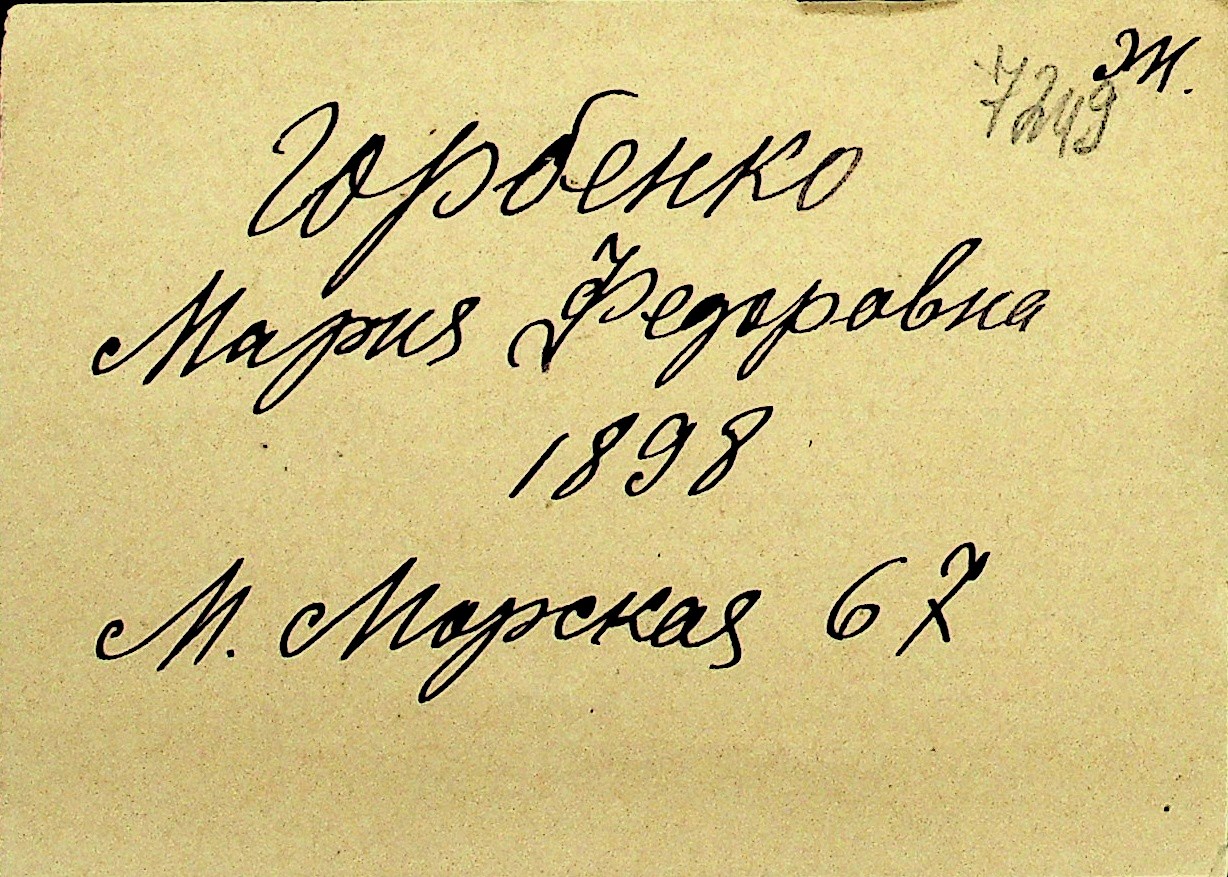 Ж.
7249
Горбенко
Мария Федоровна
1898
М. Морская 67